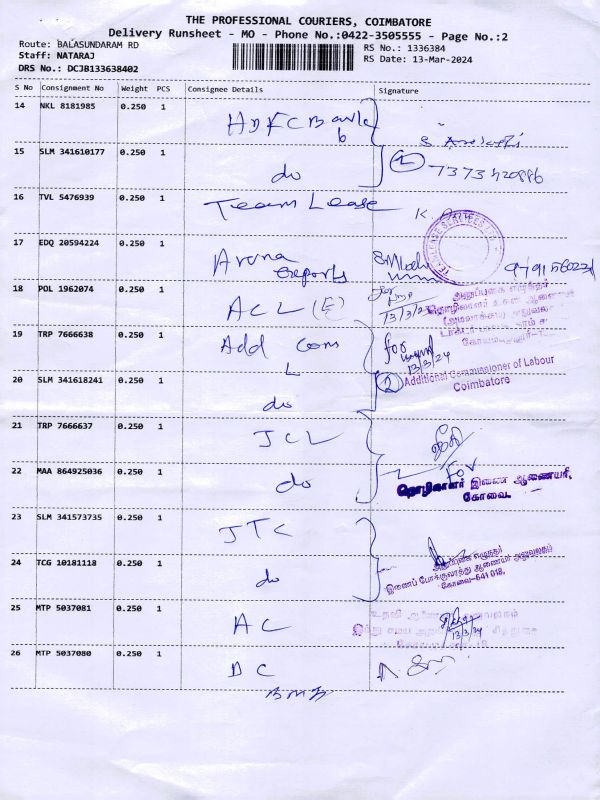 THE PROFESSIONAL COURIERS, COIMBATORE
Delivery Runsheet - MO - Phone No.:0422-3505555 - Page No.:2
Route: BALASUNDARAM RD
Staff: NATARAJ
DRS No.: DCJB133638402
RS No.: 1336384
RS Date: 13-Mar-2024
S No Consignment No Weight PCS Consignee Details Signature
14 NKL 8181985 0.250 1 HDFC Bank
15 SLM 341610177 0.250 1 do
16 TVL 5476939 0.250 1 Team Lease
17 EDQ 20594224 0.250 1 Arena Exports
18 POL 1962074 0.250 1 ACL (E)
13/3/24
19 TRP 7666638 0.250 1 Add Com L
for
13/3/24
20 SLM 341618241 0.250 1 do
2 Additional Commissioner of Labour
Coimbatore
21 TRP 7666637 0.250 1 JCL
22 MAA 864925036 0.250 1 do
For
தொழிலாளர் இணை ஆணையர்,
கோவை.
23 SLM 341573735 0.250 1 JTC
24 TCG 10181118 0.250 1 do
இணைப் போக்குவரத்து ஆணையர் அலுவலகம்
கோவை-641 018.
25 MTP 5037081 0.250 1 AC
13/3/24
26 MTP 5037080 0.250 1 DC